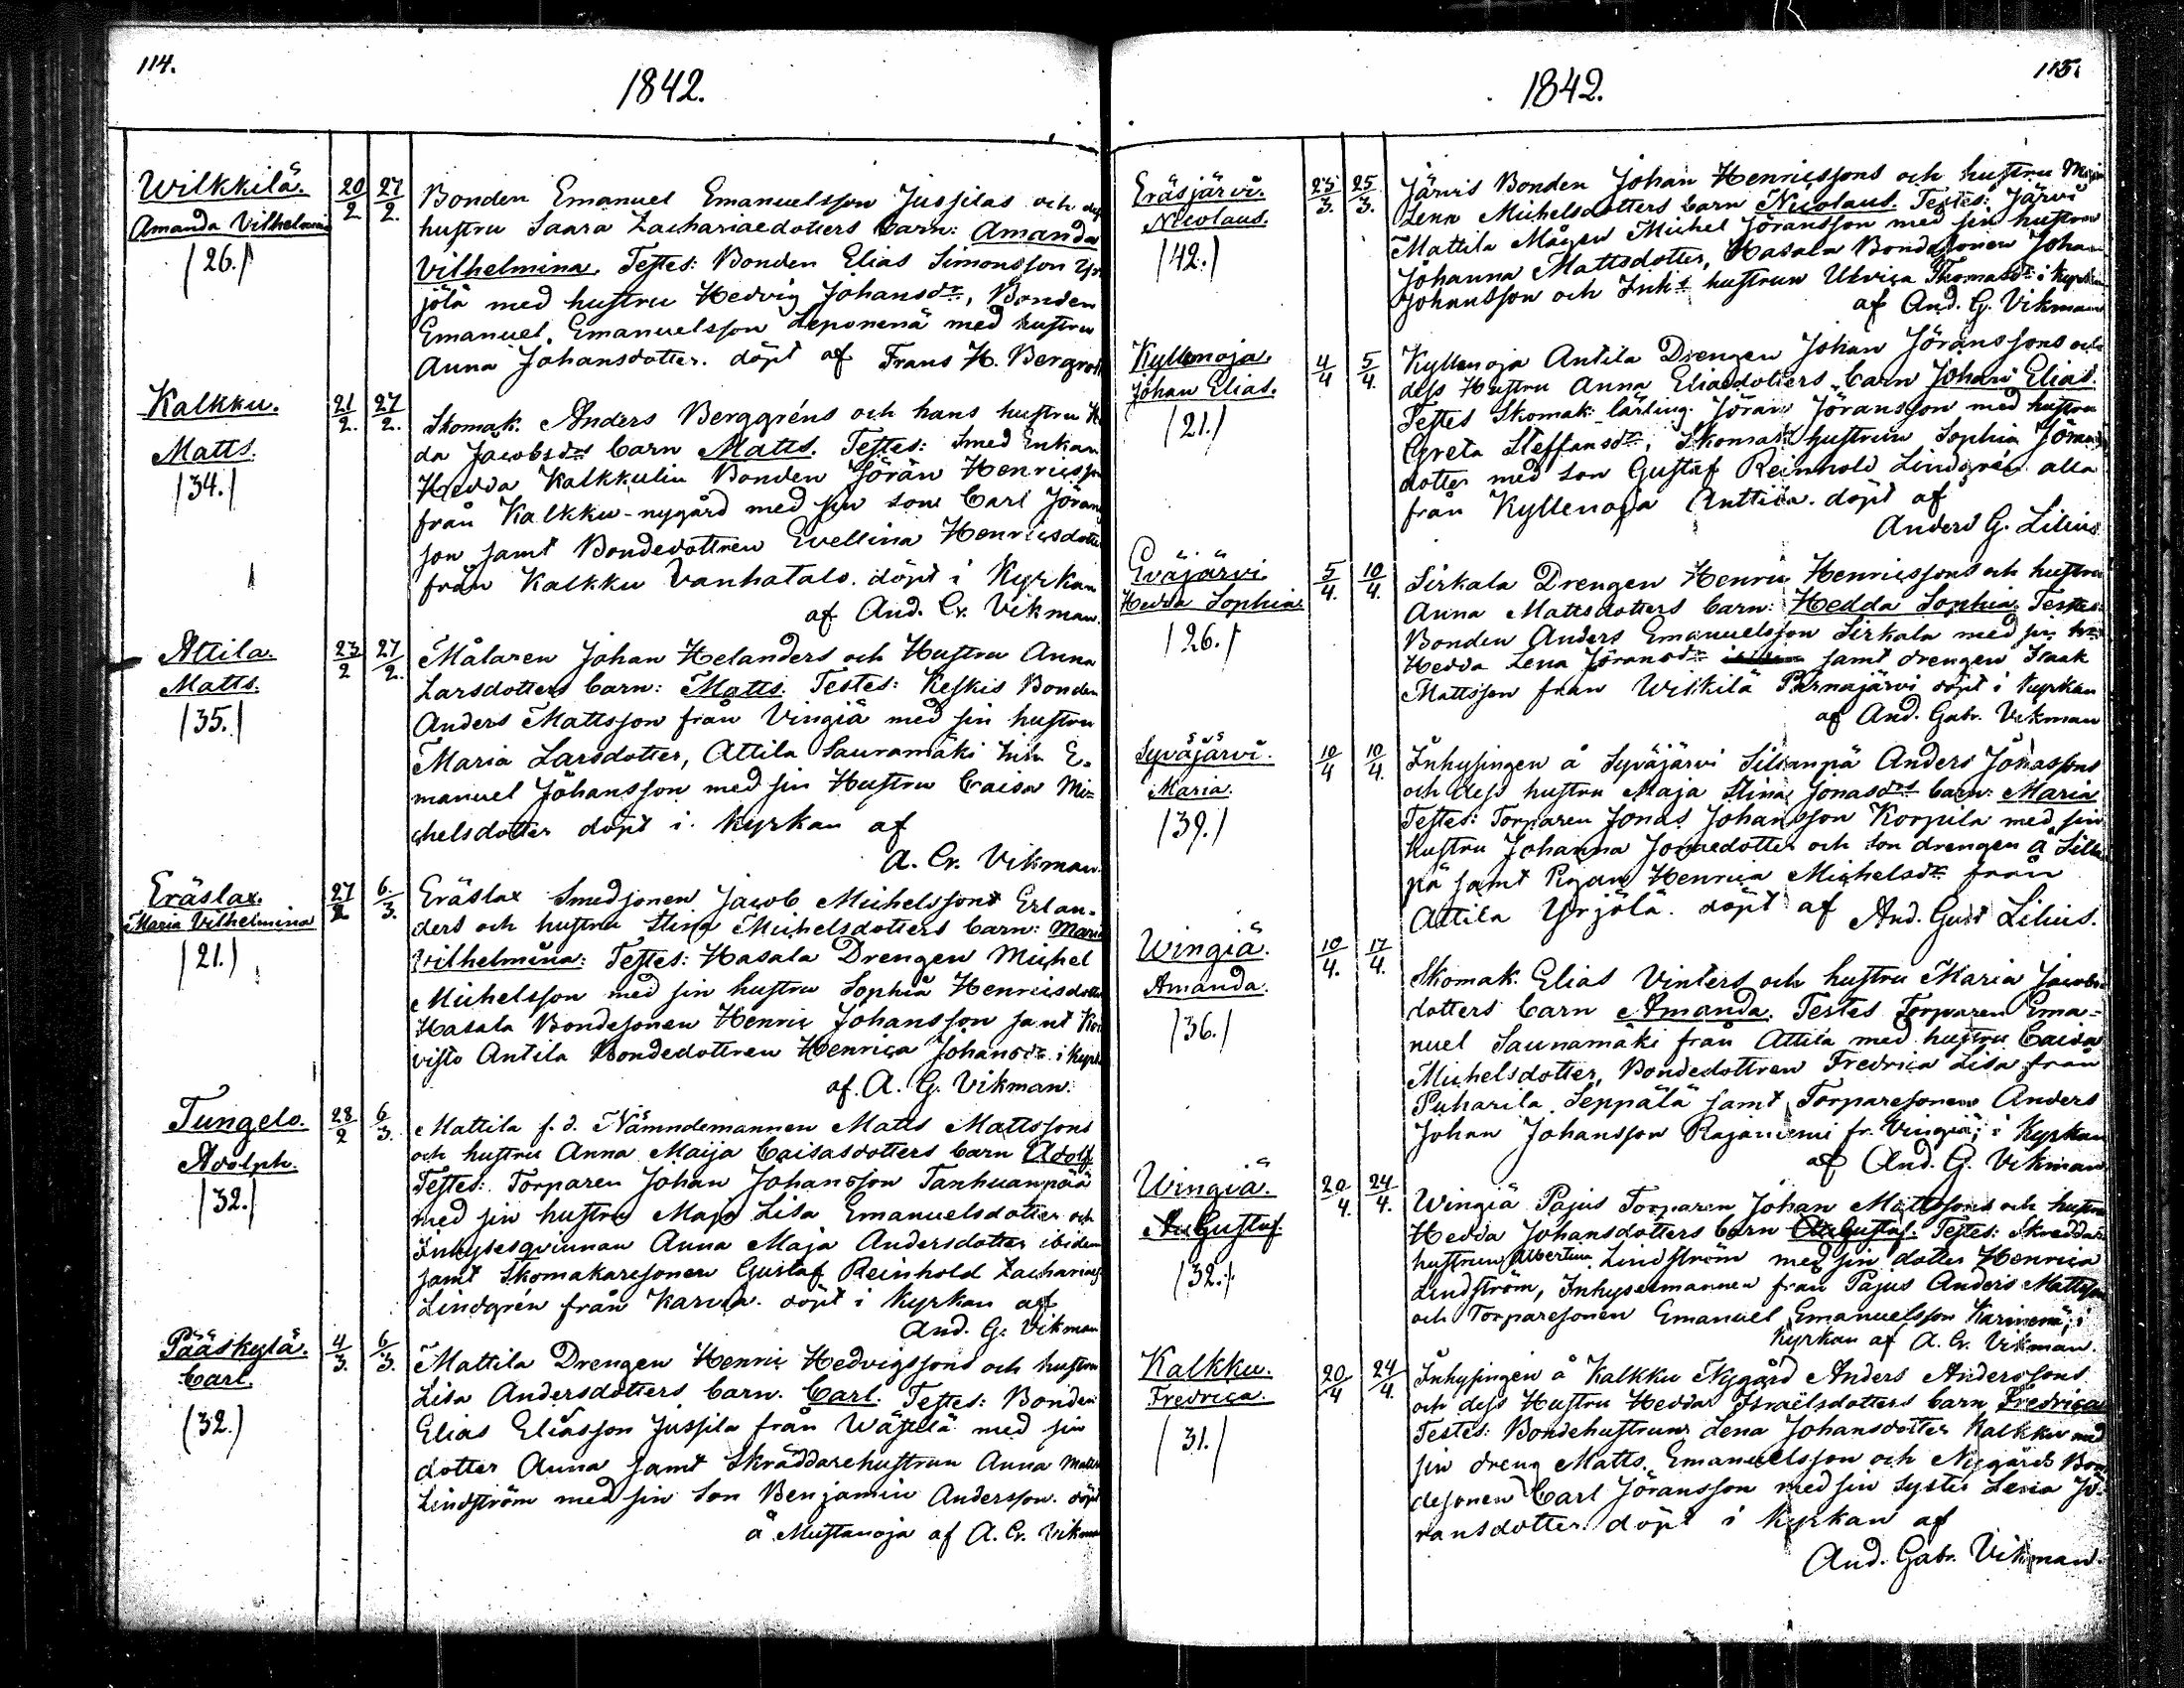 114.
1842.
Wilkkilä.
Amanda Vilhelmina
/26./
20/2 27/2.
Bonden Emanuel Emanuelsson Jussilas och dess
hustru Saara Zachariaedotters barn: Amanda
Vilhelmina. Testes: Bonden Elias Simonsson Yr
jölä med hustru Hedvig Johansdr, Bonden
Emanuel Emanuelsson Leponenä med hustru
Anna Johansdotter. döpt af Frans H. Bergroth
Kalkku.
Matts.
/34./
21/2. 27/2.
Skomak. Anders Berggréns och hans hustru He
da Jacobsdrs barn Matts. Testes: Smed Enkan
Hedda Kalkkulin Bonden Jöran Henricsson
från Kalkku-nygård med sin son Carl Jörans
son samt Bondedottren Evellina Henricsdotter
från Kalkku Vanhatalo. döpt i Kyrkan
af And. Gr. Vikman.
Attila.
Matts.
/35./
23/2 27/2.
Målaren Johan Helanders och Hustru Anna
Larsdotters barn: Matts. Testes: Keskis Bonden
Anders Mattsson från Vingiä med sin hustru
Maria Larsdotter, Attila Saunamäki Inh. E-
manuel Johansson med sin Hustru Caisa Mi-
chelsdotter döpt i Kyrkan af
A. Gr. Vikman.
Eräslax.
Maria Vilhelmina
/21./
27/2 6/3.
Eräslax Smedsonen Jacob Michelssons Erlan-
ders och hustru Stina Michelsdotters barn: Maria
Vilhelmina: Testes: Hasala Drengen Michel
Michelsson med sin hustru Sophia Henricsdotter
Hasala Bondesonen Henric Johansson samt Koi
visto Antila Bondedottren Henrica Johansdr. i Kyrk
af. A. G. Vikman.
Tungelo.
Adolph.
/32./
28/2 6/3.
Mattila f.d. Nämndemannen Matts Mattssons
och hustru Anna Maija Caisasdotters barn Adolf
Testes: Torparen Johan Johansson Tanhuanpää
med sin hustru Maja Lisa Emanuelsdotter och
Inhysesqvinnan Anna Maja Andersdotter ibidem
samt Skomakaresonen Gustaf Reinhold Zacharias
Lindgrén från Karula. döpt i Kyrkan af
And. G. Vikman
Pääskylä.
Carl.
(32.)
4/3. 6/3.
Mattila Drengen Henric Hedvigssons och hustru
Lisa Andersdotters barn. Carl. Testes: Bonden
Elias Eliasson Jussila från Wäjtelä med sin
dotter Anna samt Skräddarehustrun Anna Matts
Lindström med sin Son Benjamin Andersson. döpt
å Mustanoja af A. Gr. Vikman
115.
1842.
Eräsjärvi.
Nicolaus.
/42./
23/3. 25/3.
Järvis Bonden Johan Henricssons och hustru Maja
Lena Michelsdotters barn Nicolaus. Testes: Järvi
Mattila Mågen Michel Jöransson med sin hustru
Johanna Mattsdotter, Hasala Bondesonen Johan
Johansson och Inh:s hustrun Ulrica Thomasdr: i Kyrkan
af And. G. Vikman
Kyllenoja
Johan Elias.
/21./
4/4 5/4.
Kyllenoja Antila Drengen Johan Jöranssons och
dess Hustru Anna Eliaedotters barn Johan Elias.
Testes Skomak: lärling. Jöran Jöransson med hustru
Greta Steffansdr, Skomak: hustrun Sophia Jörans
dotter med son Gustaf Reinhold Lindgrén alla
från Kyllenoja Anttila. döpt af
Anders G. Lilius
Eväjärvi.
Hedda Sophia.
/26./
5/4. 10/4.
Sirkala Drengen Henric Henricssons och hustru
Anna Mattsdotters barn: Hedda Sophia. Testes:
Bonden Anders Emanuelsson Sirkala med sin hu
Hedda Lena Jöransdr samt drengen Isaak
Mattsson från Wilkilä Pärnajärvi döpt i Kyrkan
af And. Gabr. Vikman
Syväjärvi.
Maria.
/39./
10/4 10/4.
Inhysingen å Syväjärvi Silsanpä Anders Jonassons
och dess hustru Maja Stina Jonasdrs barn: Maria
Testes: Torparen Jonas Johansson Korpila med sin
hustru Johanna Jonaedotter och son drengen å Sillan
pä samt Pigan Henrica Michelsdr från
Attila Yrjölä. döpt af And. Gust Lilius.
Wingiä.
Amanda.
/36./
10/4. 17/4.
Skomak. Elias Vinters och hustru Maria Jacobs
dotters barn Amanda. Testes Torparen Ema-
nuel Saunamäki från Attila med hustru Caisa
Michelsdotter, Bondedottren Fredrica Lisa från
Puharila Seppälä samt Torparesonen Anders
Johan Johansson Rajaniemi fr. Vingiä; i Kyrkan
af And. G. Vikman
Wingiä.
Gustaf
/32./
20/4. 24/4.
Wingiä Pajus Torparen Johan Mattssons och hustru
Hedda Johansdotters barn Gustaf. Testes: Skreddare
hustrun Albertina Lindström med sin dotter Henrica
Lindström, Inhysesmannen från Pajus Anders Mattsson
och Torparesonen Emanuel Emanuelsson Kariniemi, i
Kyrkan af A. Gr. Vikman.
Kalkku.
Fredrica.
/31./
20/4 24/4.
Inhysingen å Kalkku Nygård Anders Anderssons
och dess Hustru Hedda Israëlsdotters barn Fredrica
Testes: Bondehustrun Lena Johansdotter Kalkku med
sin dreng Matts Emanuelsson och Nygårds Bon
desonen Carl Jöransson med sin syster Lena Jö-
ransdotter. döpt i Kyrkan af
And. Gabr. Vikman.